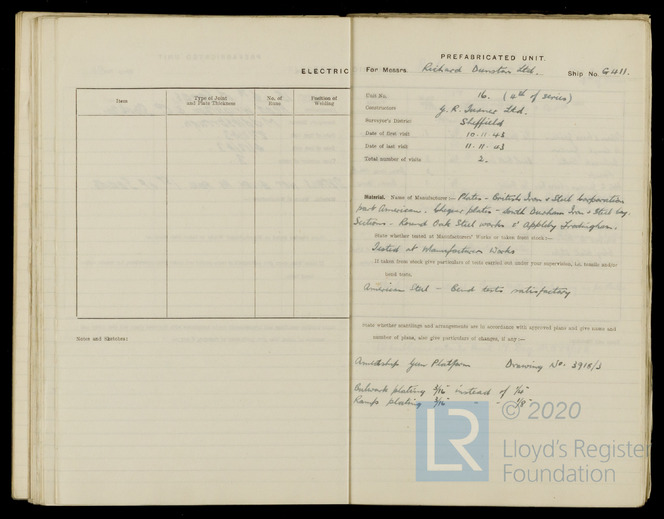 ELECTRIC
Item
Type of Joint and Plate Thickness
No. of Runs
Position of Welding
Notes and Sketches:
PREFABRICATED UNIT.
For Messrs. Richard Dunston Ltd. Ship No. G 411.
Unit No. 16. (4th of series)
Constructors G. R. Turner Ltd.
Surveyor's District Sheffield
Date of first visit 10.11.43
Date of last visit 11.11.43
Total number of visits 2.
Material. Name of Manufacturer:- Plates - British Iron & Steel Corporation
part American. Chequer plates - South Durham Iron & Steel
Sections. Round Oak Steel works & Appleby Frodingham.
State whether tested at Manufacturers' Works or taken from stock:-
Tested at Manufacturers Works
If taken from stock give particulars of tests carried out under your supervision, i.e. tensile and/or
bend tests.
American Steel - Bend tests satisfactory
State whether scantlings and arrangements are in accordance with approved plans and give name and
number of plans, also give particulars of changes, if any:-
Amidship Gun Platform Drawing No. 3918/3
Bulwark plating 3/16" instead of 1/4"
Ramps plating 3/16" " " 1/8"
© 2020
LR
Lloyd's Register
Foundation